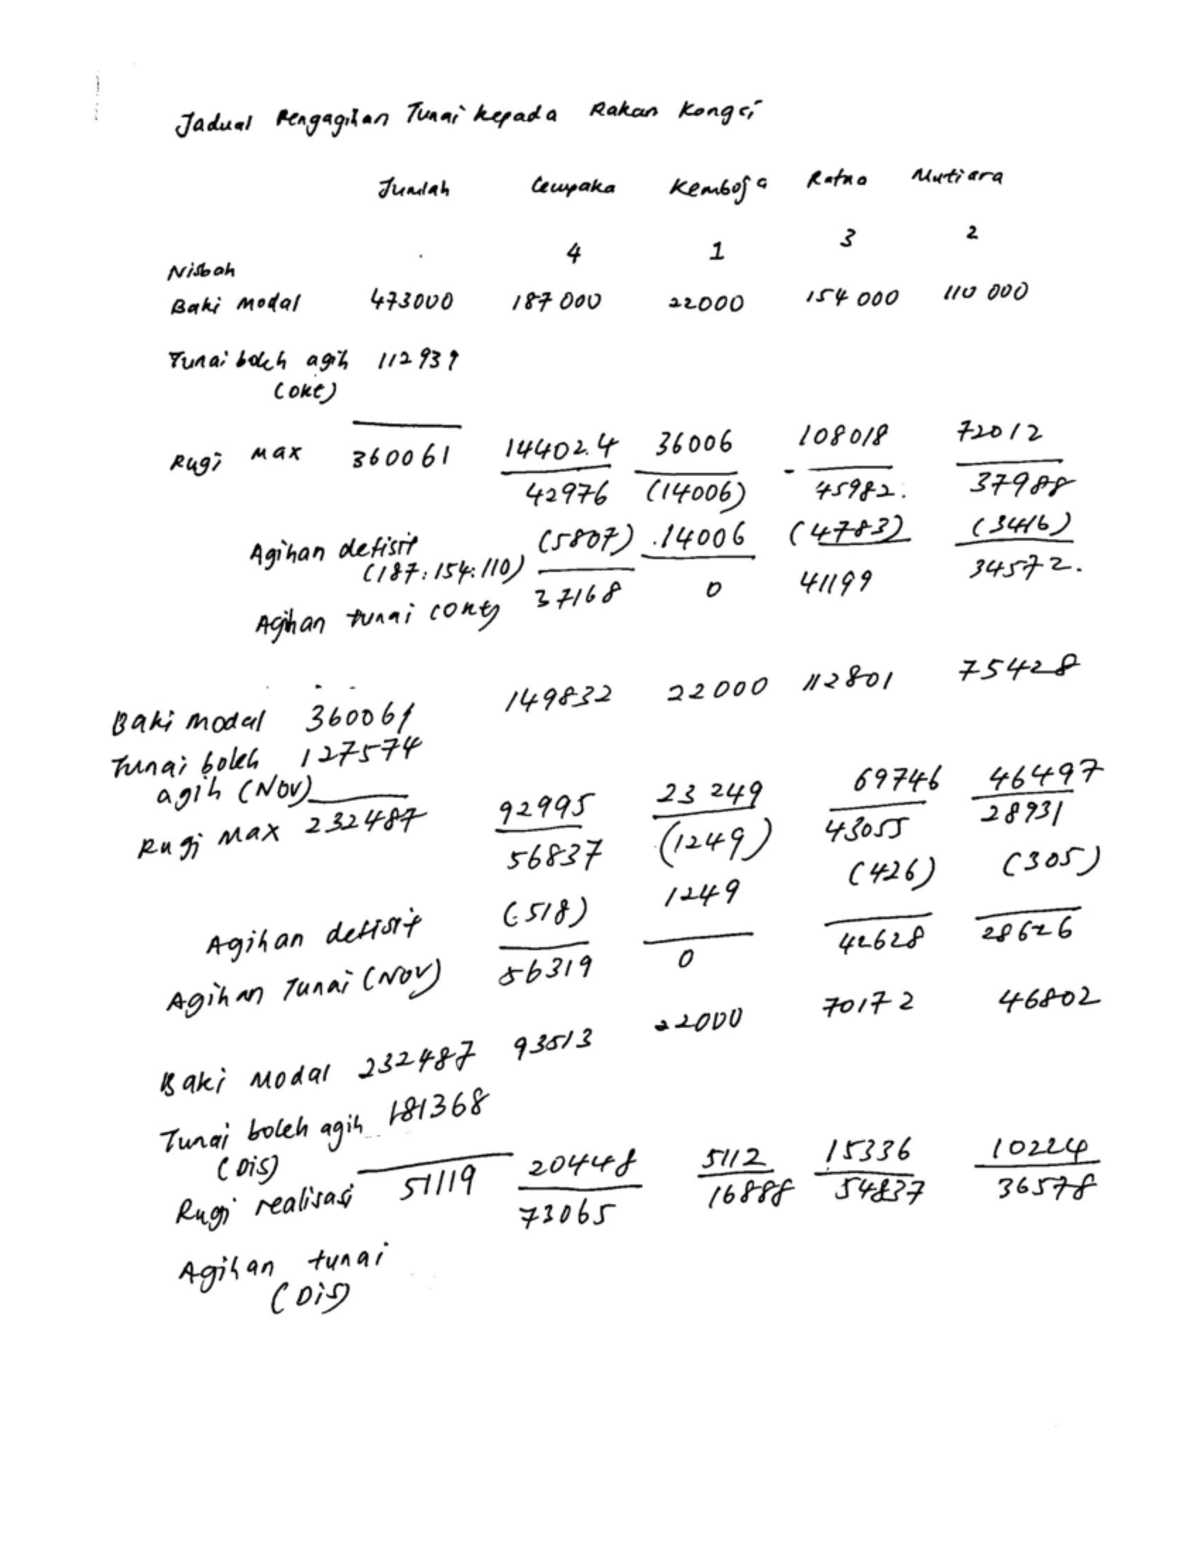 Jadual Pengagihan Tunai kepada Rakan Kongsi
Jumlah Cempaka Kemboja Ratna Mutiara
Nisbah 4 1 3 2
Baki Modal 473000 187 000 22000 154 000 110 000
Tunai boleh agih 112939
(Okt)
Rugi Max 360061 144024 36006 108018 72012
42976 (14006) 45982. 37988
Agihan defisit (5807) 14006 (4783) (3416)
(187:154:110)
Agihan tunai (Okt) 37168 0 41199 34572.
Baki modal 360061 149832 22000 112801 75428
Tunai boleh 127574
agih (Nov)
Rugi Max 232487 92995 23 249 69746 46497
56837 (1249) 43055 28931
Agihan defisit (518) 1249 (426) (305)
Agihan Tunai (Nov) 56319 0 42628 28626
Baki Modal 232487 93513 22000 70172 46802
Tunai boleh agih 181368
(Dis)
Rugi realisasi 51119 20448 5112 15336 10224
73065 16888 54837 36578
Agihan tunai
(Dis)